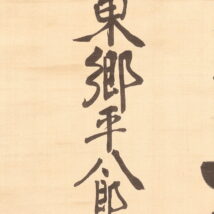 東郷平八郎